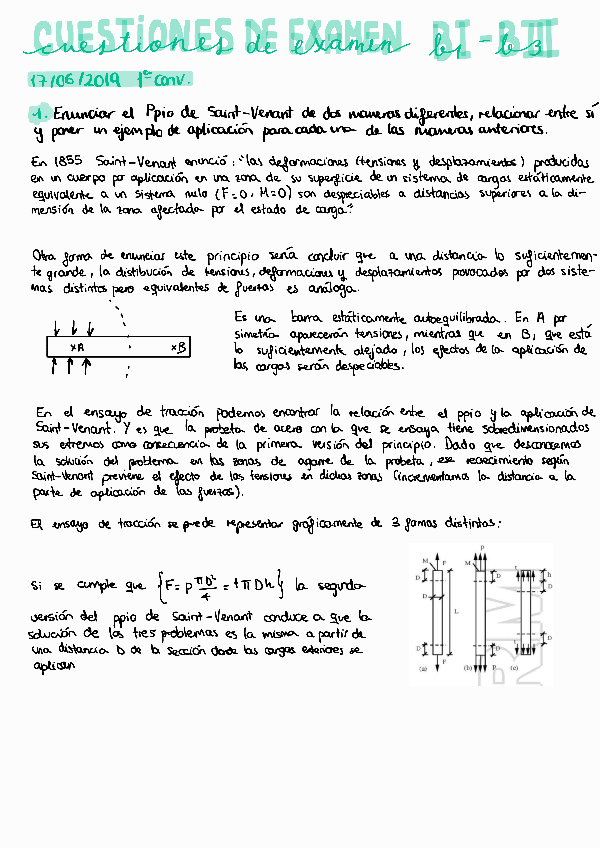 CUESTIONES DE EXAMEN BI-BIII
cuestiones de examen b1-b3
17/06/2019 1ª conv.
1. Enunciar el Ppio de Saint-Venant de dos maneras diferentes, relacionar entre sí
y poner un ejemplo de aplicación para cada una de las maneras anteriores.
En 1855 Saint-Venant enunció: "las deformaciones (tensiones y desplazamientos) producidas
en un cuerpo por aplicación en una zona de su superficie de un sistema de cargas estáticamente
equivalente a un sistema nulo (F=0, M=0) son despreciables a distancias superiores a la di-
mensión de la zona afectada por el estado de carga"
Otra forma de enunciar este principio sería concluir que a una distancia lo suficientemen-
te grande, la distribución de tensiones, deformaciones y desplazamientos provocados por dos siste-
mas distintos pero equivalentes de fuerzas es análoga.
Es una barra estáticamente autoequilibrada. En A por
simetría aparecerán tensiones, mientras que en B, que está
lo suficientemente alejado, los efectos de la aplicación de
las cargas serán despreciables.
xA
xB
En el ensayo de tracción podemos encontrar la relación entre el ppio y la aplicación de
Saint-Venant. Y es que la probeta de acero con la que se ensaya tiene sobredimensionados
sus extremos como consecuencia de la primera versión del principio. Dado que desconocemos
la solución del problema en las zonas de agarre de la probeta, ese recrecimiento según
Saint-Venant previene el efecto de las tensiones en dichas zonas (incrementamos la distancia a la
parte de aplicación de las fuerzas).
El ensayo de tracción se puede representar gráficamente de 3 formas distintas:
Si se cumple que {F = p πD²/4 = t π D h} la segunda
versión del ppio de Saint-Venant conduce a que la
solución de los tres problemas es la misma a partir de
una distancia D de la sección donde las cargas exteriores se
aplican
M F M p t h
D D D
D L
D D D
F p
(a) (b) (c)